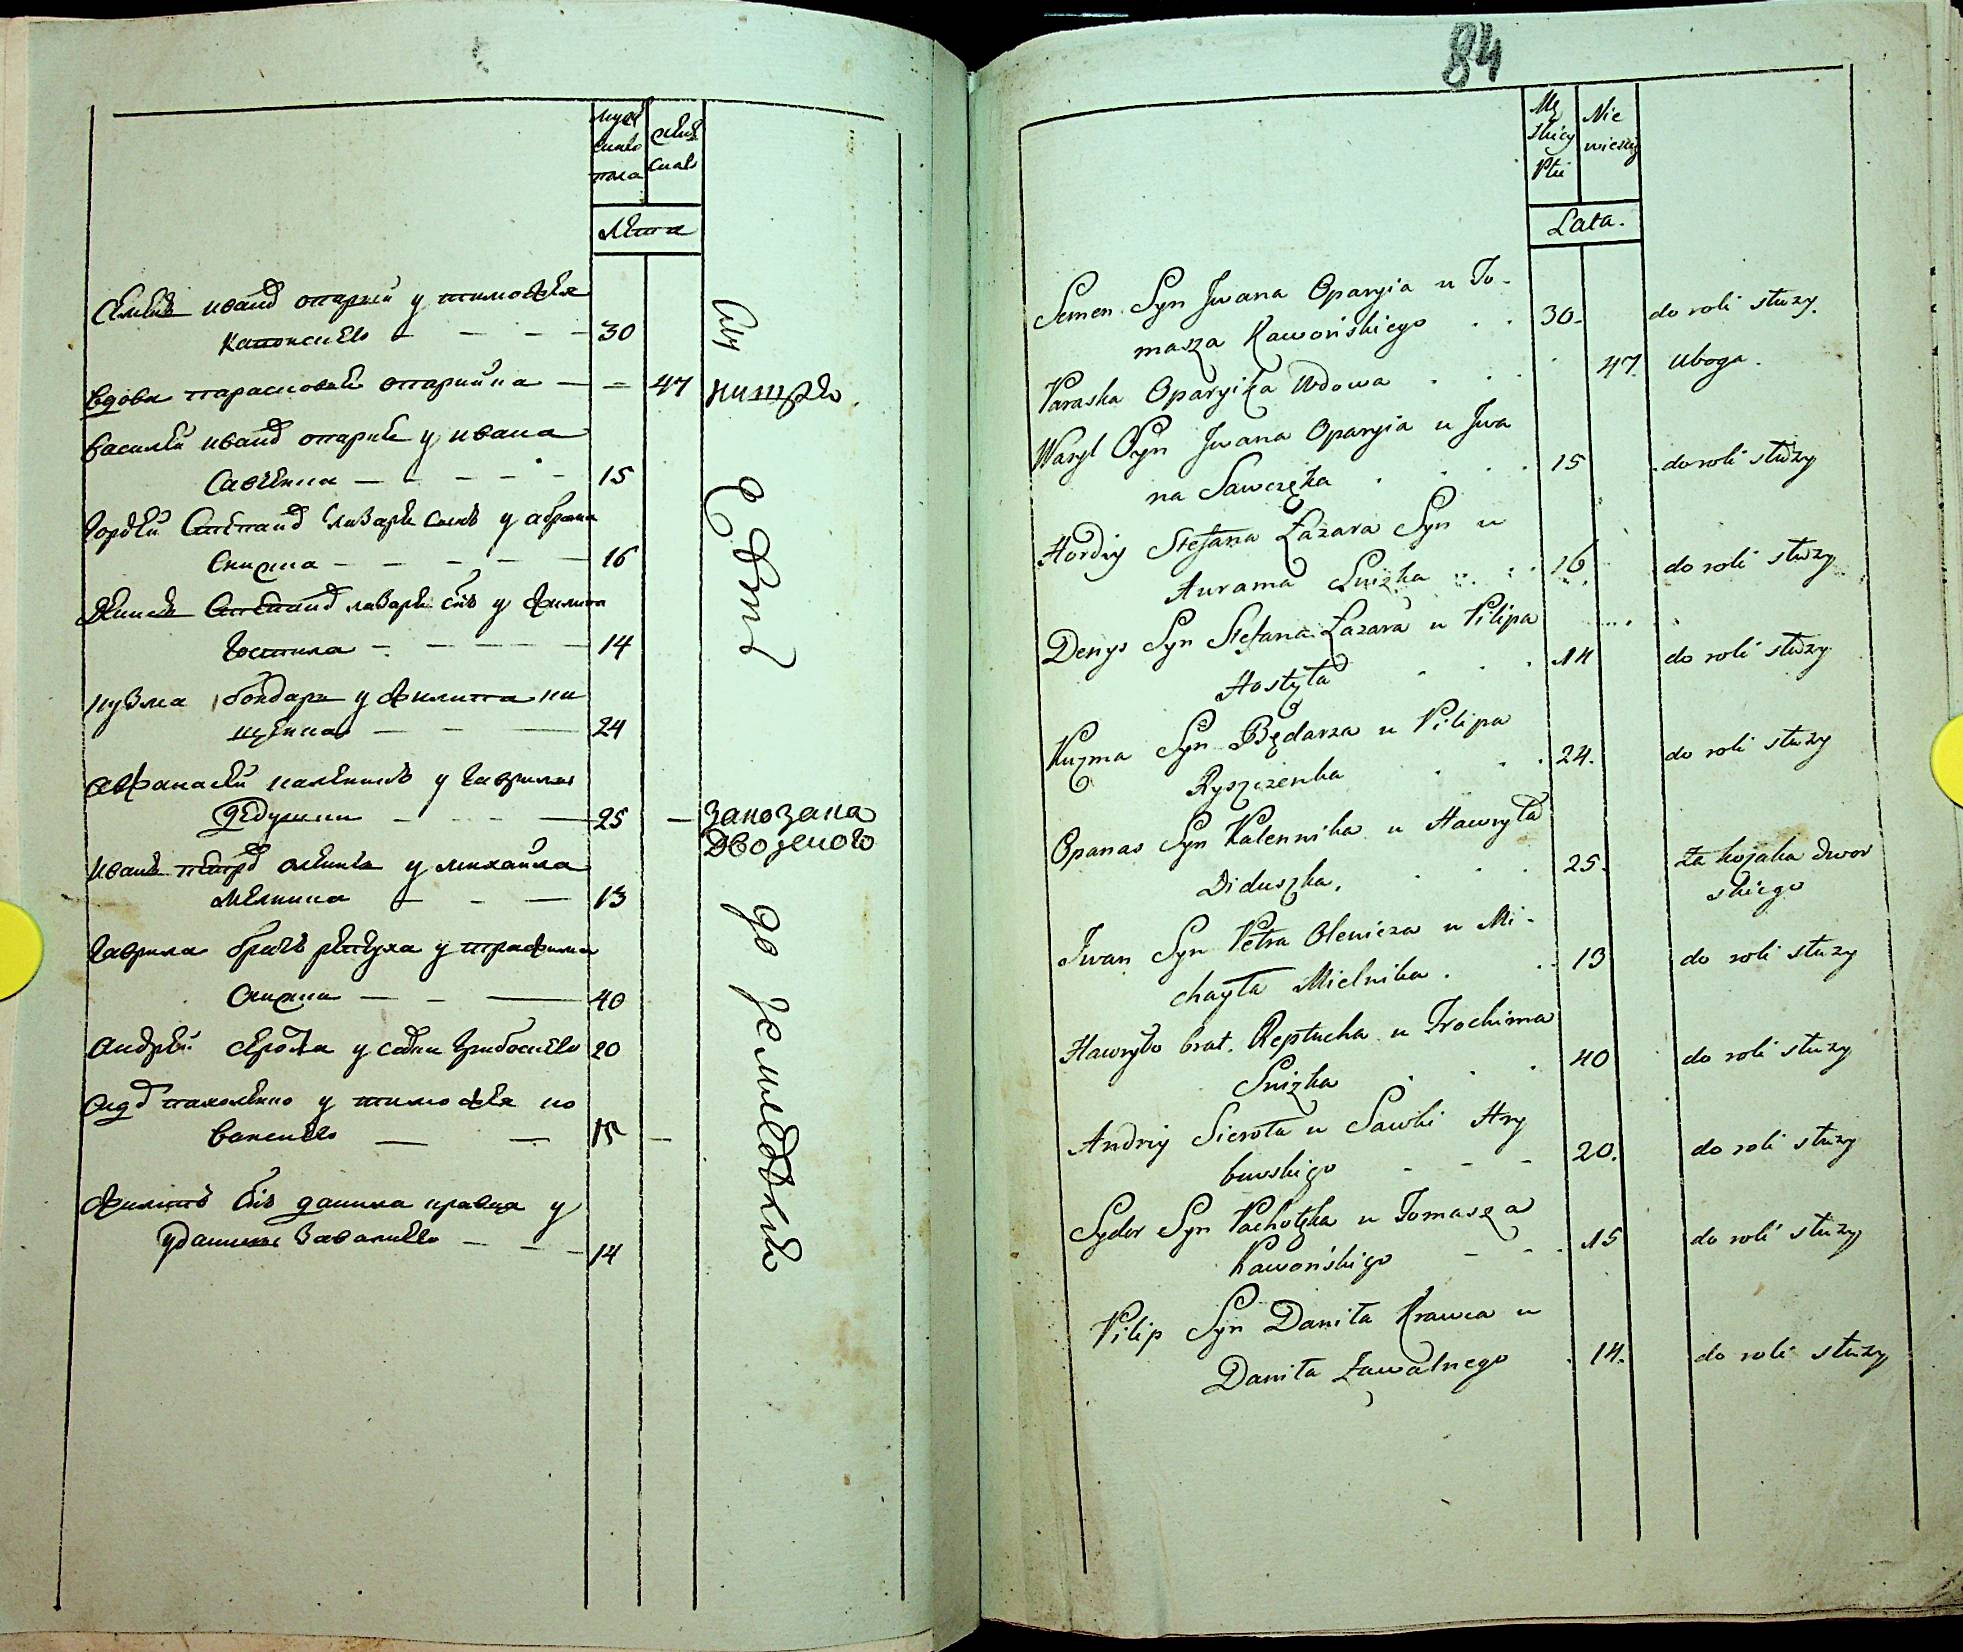 мужеска пола
женска
Лета
Семенъ иванд опарии у тимофея
каповскѣо 30
вдова парасковея опарийка 47 нищая
василей иванд опарие у ивана
Савчука 15
гордѣй Степанд лазаре синъ у абрама
Снижка 16
Денисъ Степанд лазаре синъ у филипа
гостила 14
кузма бондаре у филипа ки
щенка 24
афанасей каленикъ у гаврила
дедушки 25 за козака
дворского
иванъ петрд оленичъ у михайла
мелника 13
гаврила братъ рептуха у трофима
Снижка 40
андрей сирота у савки грибовскѣо 20
сидд пахолченко у тимофея ко
вонскѣо 15
филипъ синъ данила кравца у
данила завалнѣо 14
служитъ до
84
Mę
skiey
Płci
Nie
wieściey
Lata.
Semen Syn Jwana Oparyia u To-
masza Kawońskiego 30. do roli służy.
Paraska Oparyika Wdowa 47 Uboga.
Wasyl Syn Jwana Oparyia u Jwa
na Sawczęka 15 do roli służy
Hordiy Stefana Łazara Syn u
Awrama Snizka 16 do roli służy
Denys Syn Stefana Łazara u Pilipa
Hostyła 14 do roli służy
Kuzma Syn Będarza u Pilipa
Kyszczenka 24. do roli służy
Opanas Syn Kalennika u Hawryła
Diduszka. 25. za kozaka dwor
skiego
Jwan Syn Petra Olenicza u Mi-
chayła Mielnika. 13 do roli służy
Hawryło brat Reptucha u Trochima
Snizka 40 do roli służy
Andriy Sierota u Sawki Hry
bowskiego 20. do roli służy
Sydor Syn Pachołka u Tomasza
Kawońskiego 15 do roli służy
Pilip Syn Daniła Krawca u
Daniła Zawalnego 14. do roli służy